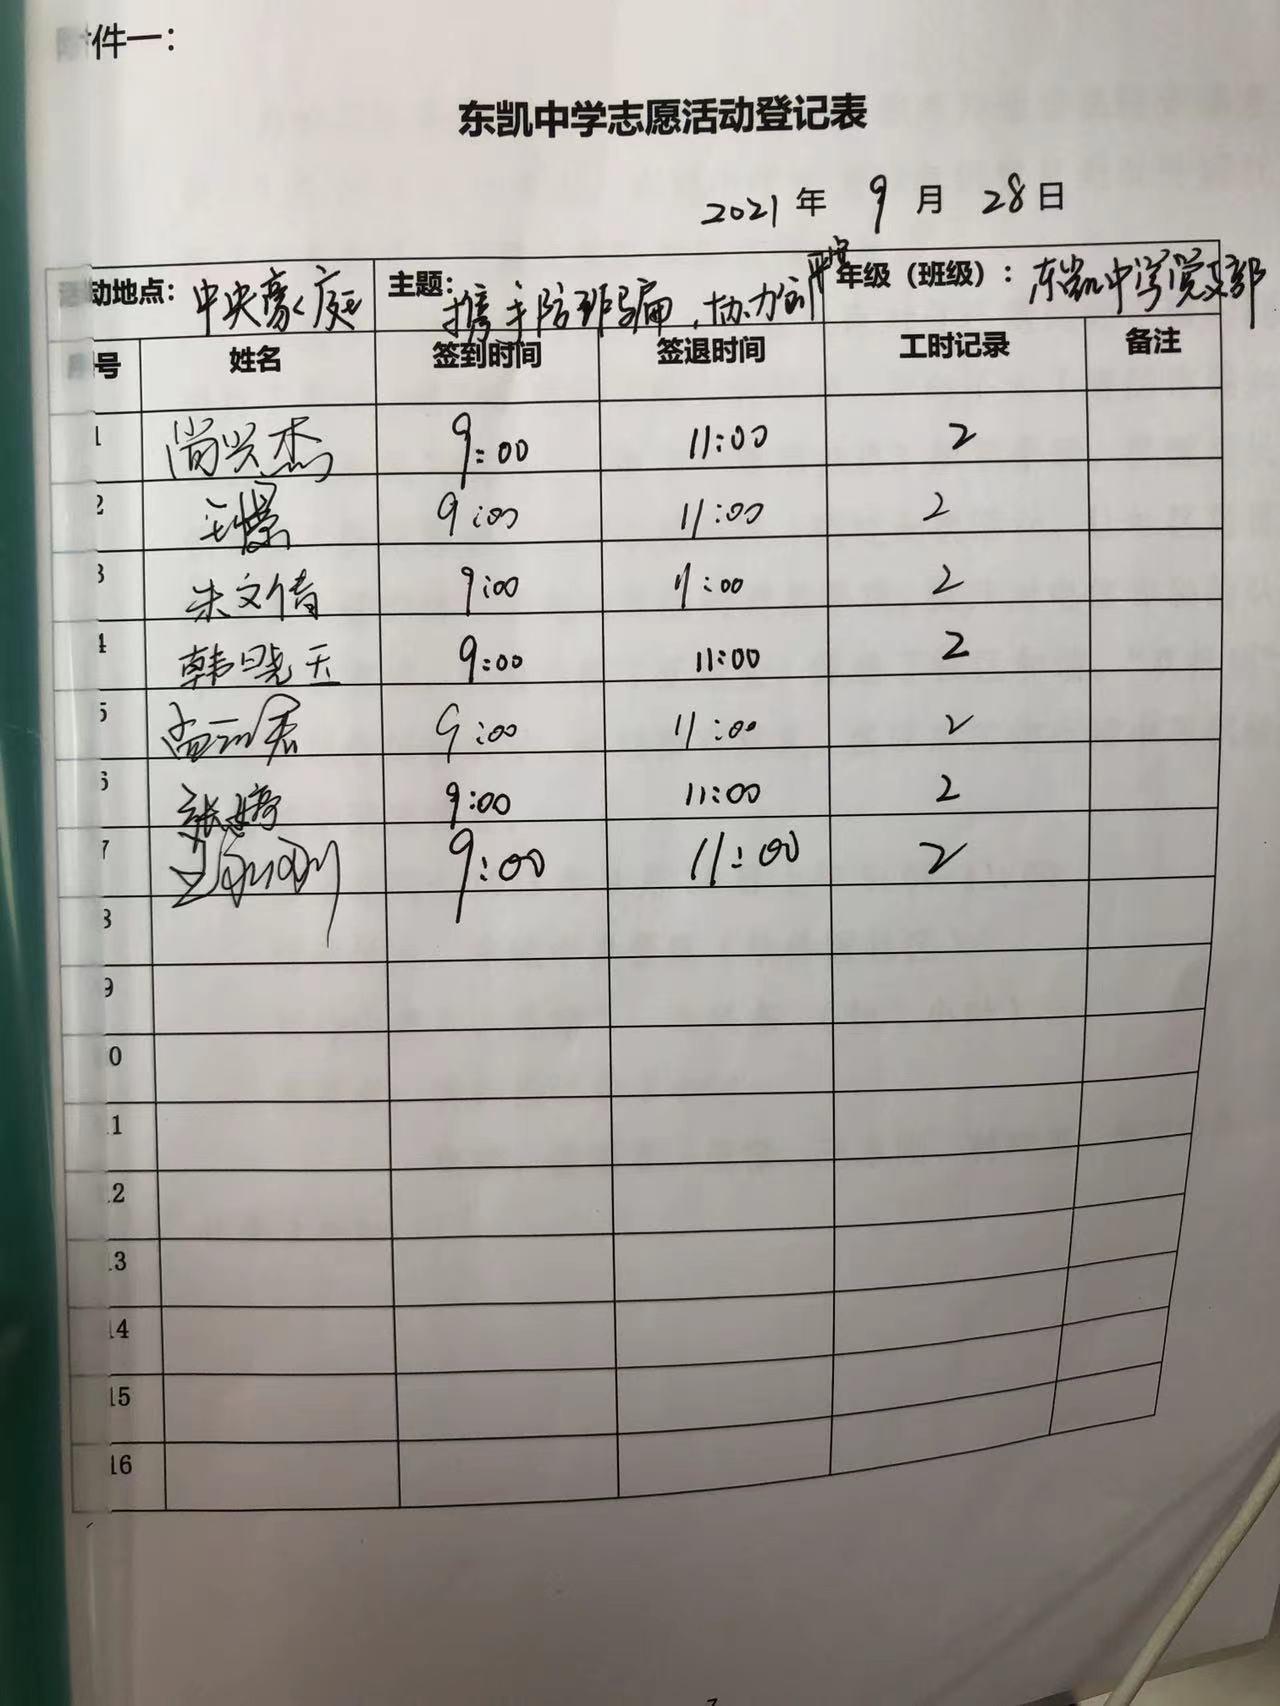 附件一：
东凯中学志愿活动登记表
2021 年 9 月 28 日
活动地点： 中央豪庭 主题： 携手防诈骗，协力创平安 年级（班级）：东凯中学党支部
序号 姓名 签到时间 签退时间 工时记录 备注
1 尚兴杰 9:00 11:00 2
2 9:00 11:00 2
3 朱文倩 9:00 11:00 2
4 韩晓玉 9:00 11:00 2
5 9:00 11:00 2
6 张婷 9:00 11:00 2
7 9:00 11:00 2
8
9
10
11
12
13
14
15
16